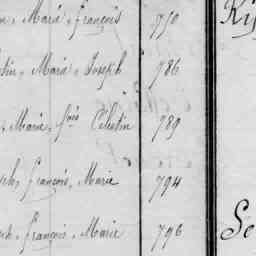 Marie, françois 750
Marie, Joseph 786
Marie, fois Célestin 789
françois, Marie 794
françois, Marie 796